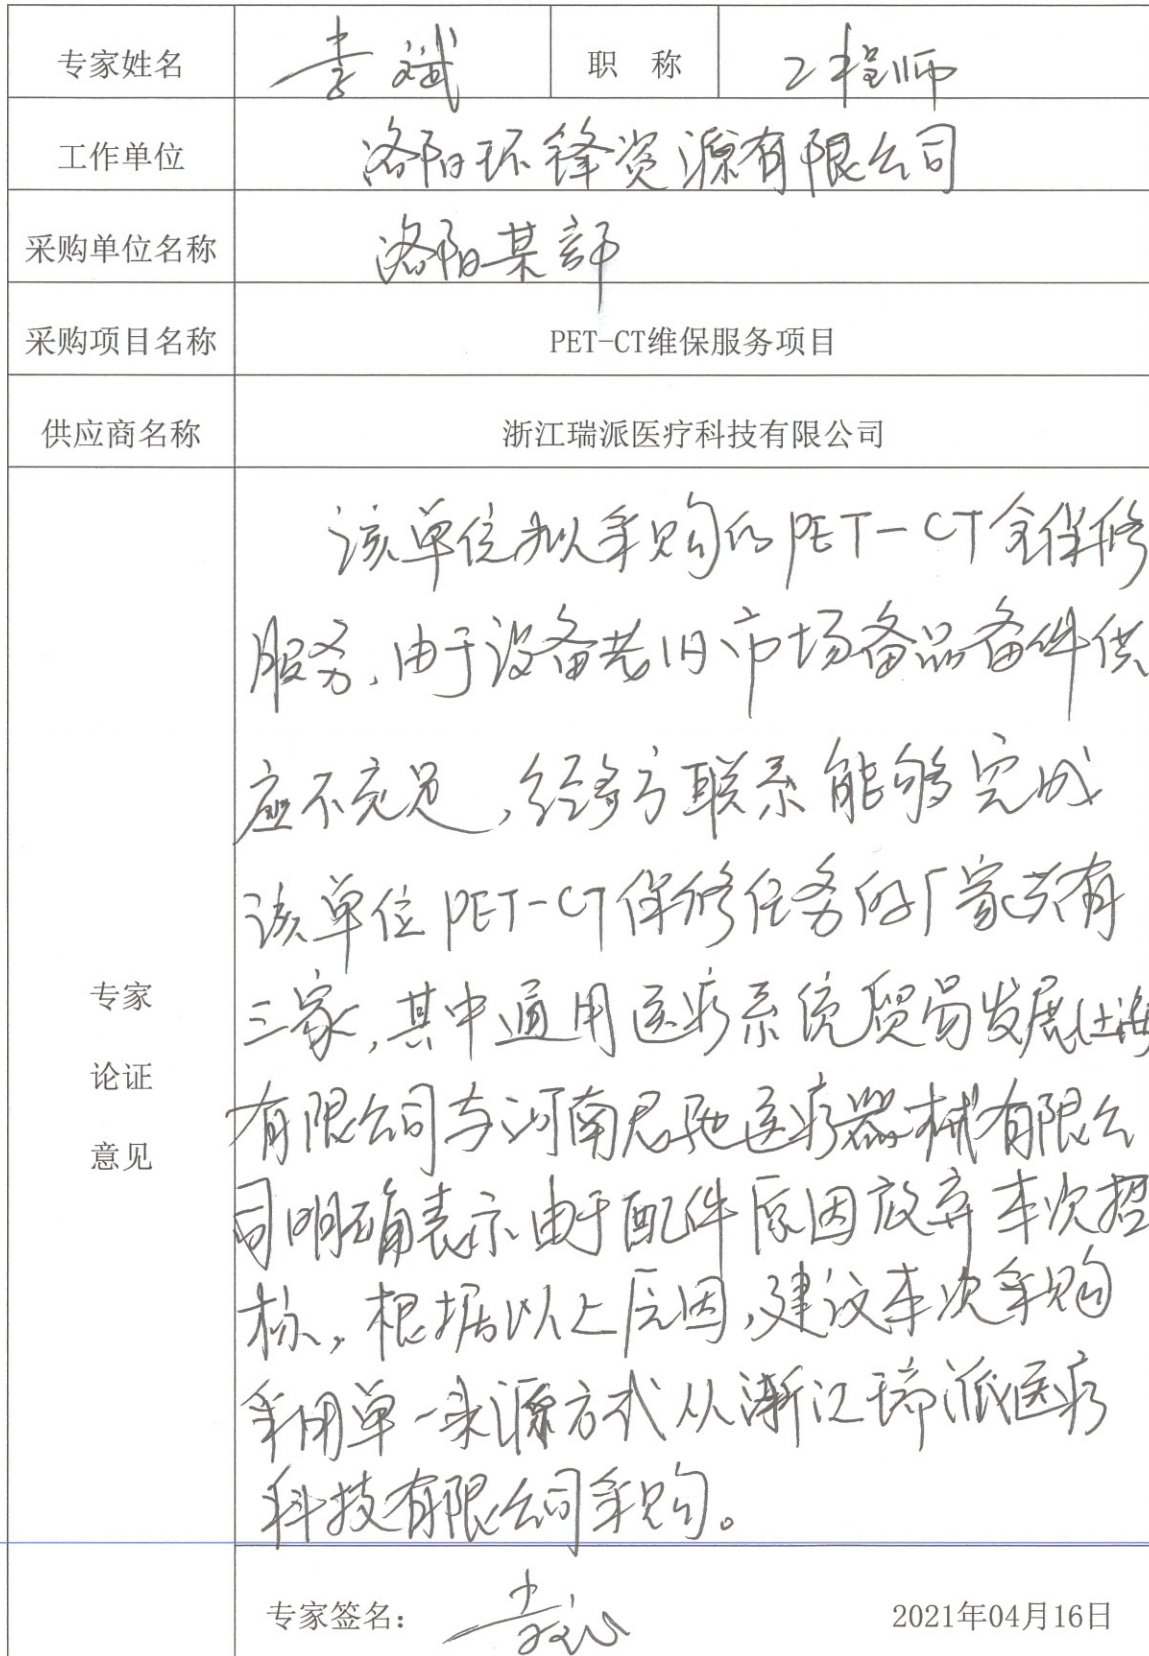 专家姓名 李斌 职 称 工程师
工作单位 洛阳环锋资源有限公司
采购单位名称 洛阳某部
采购项目名称 PET-CT维保服务项目
供应商名称 浙江瑞派医疗科技有限公司
该单位拟采购的PET-CT全保修
服务,由于设备老旧市场备品备件供
应不充足,经多方联系能够完成
该单位PET-CT保修任务的厂家共有
三家,其中通用医疗系统贸易发展(上海
有限公司与河南思驰医疗器械有限公
司明确表示由于配件原因放弃本次招
标。根据以上原因,建议本次采购
采用单一来源方式从浙江瑞派医疗
科技有限公司采购。
专家
论证
意见
专家签名: 李斌 2021年04月16日